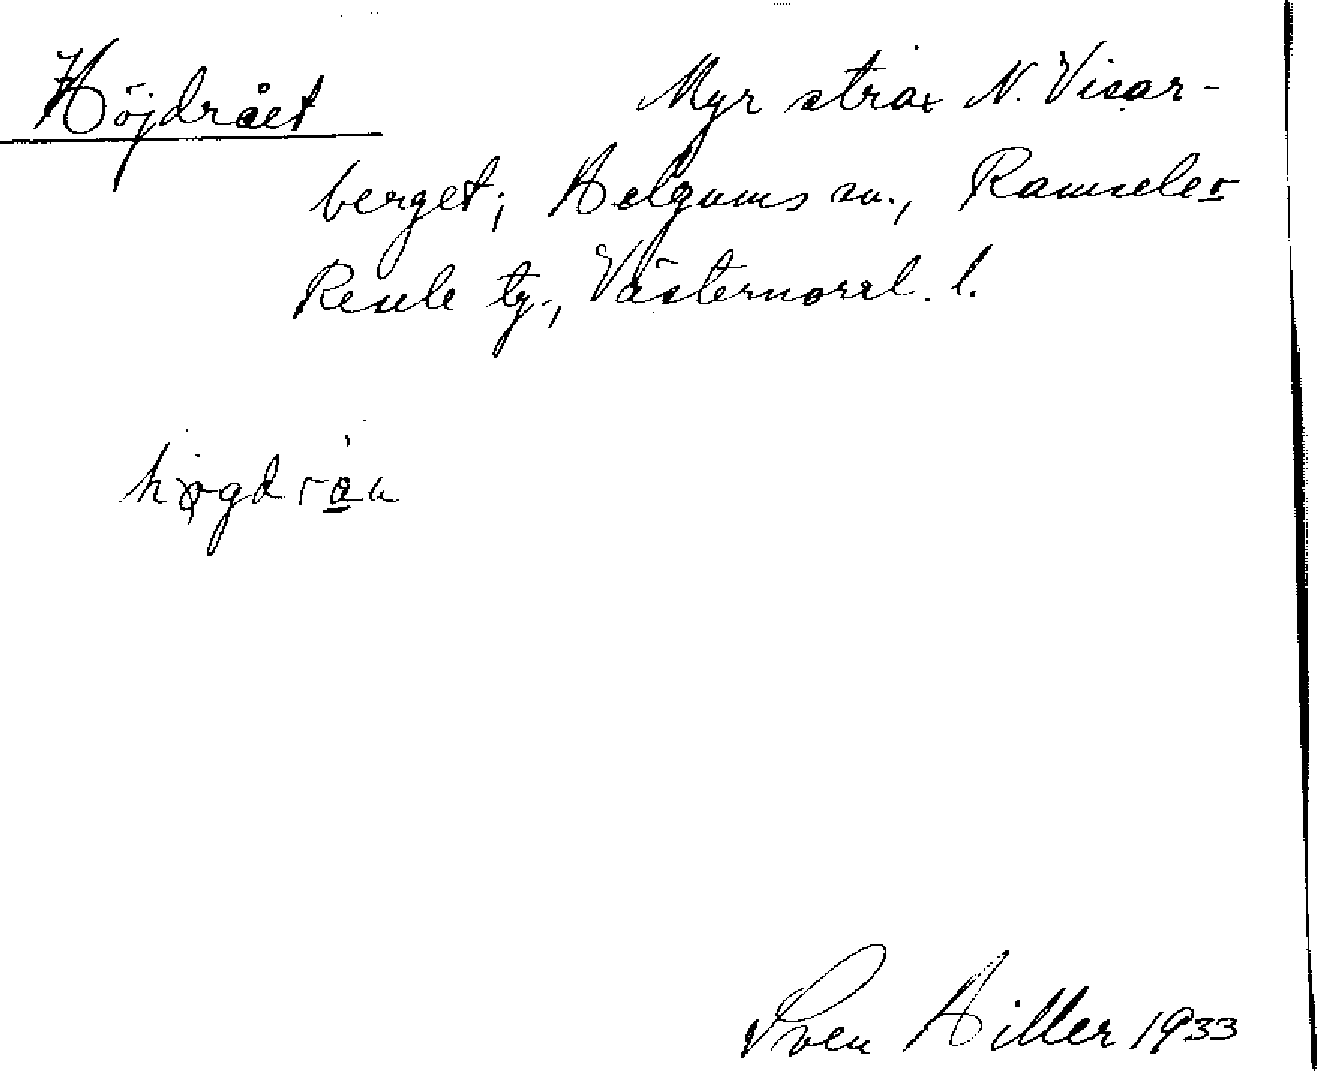 Höjdrået Myr strax N. Visar-
berget; Helgums sn., Ramsele o
Resele tg., Västernorrl. l.
høgdråa
Sven Hiller 1933